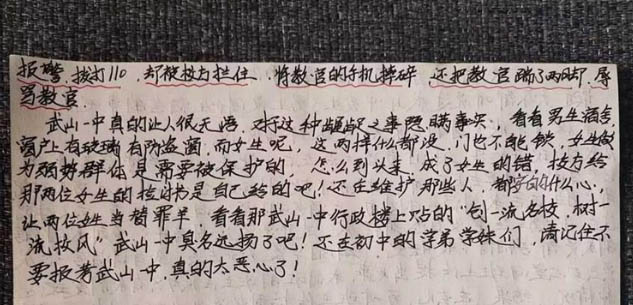 报警，拨打110，却被校方拦住，将教官的手机摔碎，还把教官踹了两脚，辱
骂教官
武山一中真的让人很无语，对于这种龌龊之事隐瞒事实，看看男生宿舍
窗户上有玻璃有防盗窗，而女生呢，这两样什么都没，门也不能锁，女生做
为弱势群体是需要被保护的，怎么到头来，成了女生的错，校方给
那两位女生的检讨书是自己给的吧！还在维护那些人，都学的什么心，
让两位女生当替罪羊，看看那武山一中行政楼上贴的“创一流名校，树一
流校风”武山一中臭名远扬了吧！还在初中的学弟学妹们，请记住不
要报考武山一中，真的太恶心了！